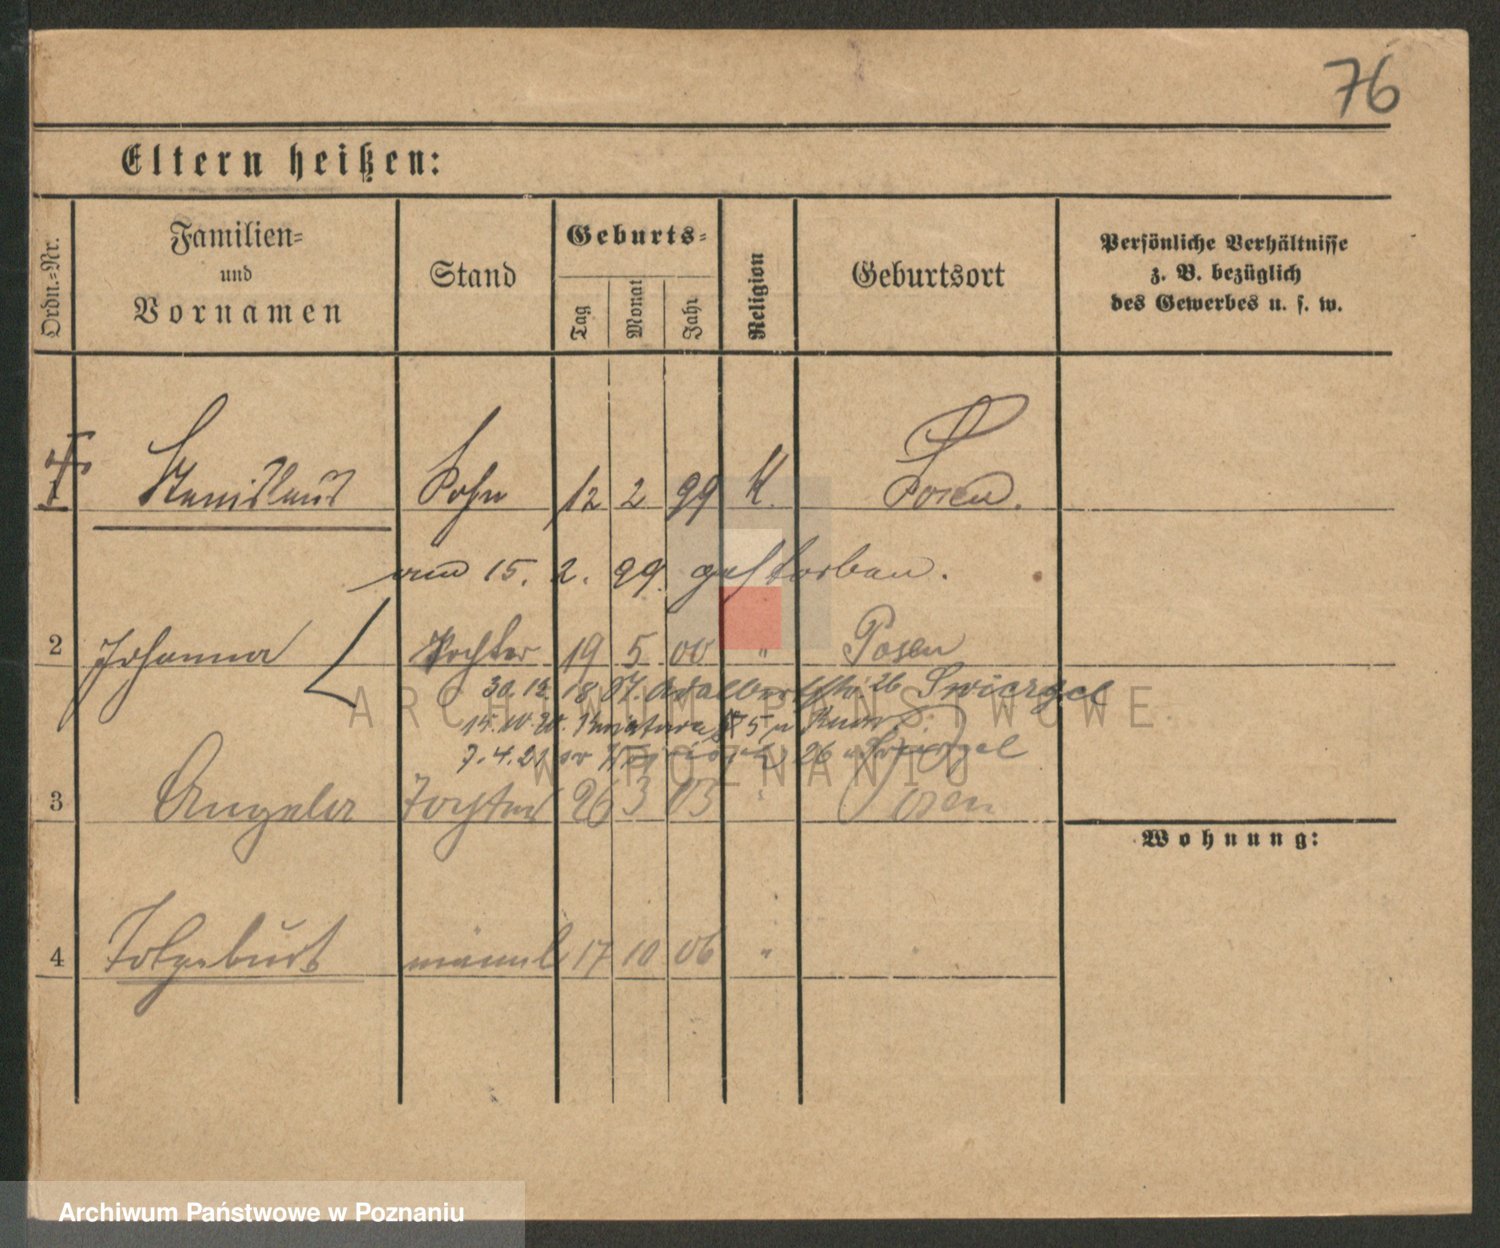 76
Eltern heißen:
Ordn.=Nr.
Familien=
und
Vornamen
Stand
Geburts=
Tag
Monat
Jahr
Religion
Geburtsort
Persönliche Verhältnisse
z. B. bezüglich
des Gewerbes u. s. w.
1 Stanislaus Sohn 12 2 99 K. Posen.
am 15. 2. 99. gestorben.
2 Johanna Tochter 19 5 00 " Posen
30. 12. 18 Adalbertstr. 26 Swiergel
7. 4. 21 26
3 Angela Tochter 26 3 03 " Posen
Wohnung:
4 Totgeburt männl 17 10 06 "
ARCHIWUM PAŃSTWOWE
W POZNANIU
Archiwum Państwowe w Poznaniu